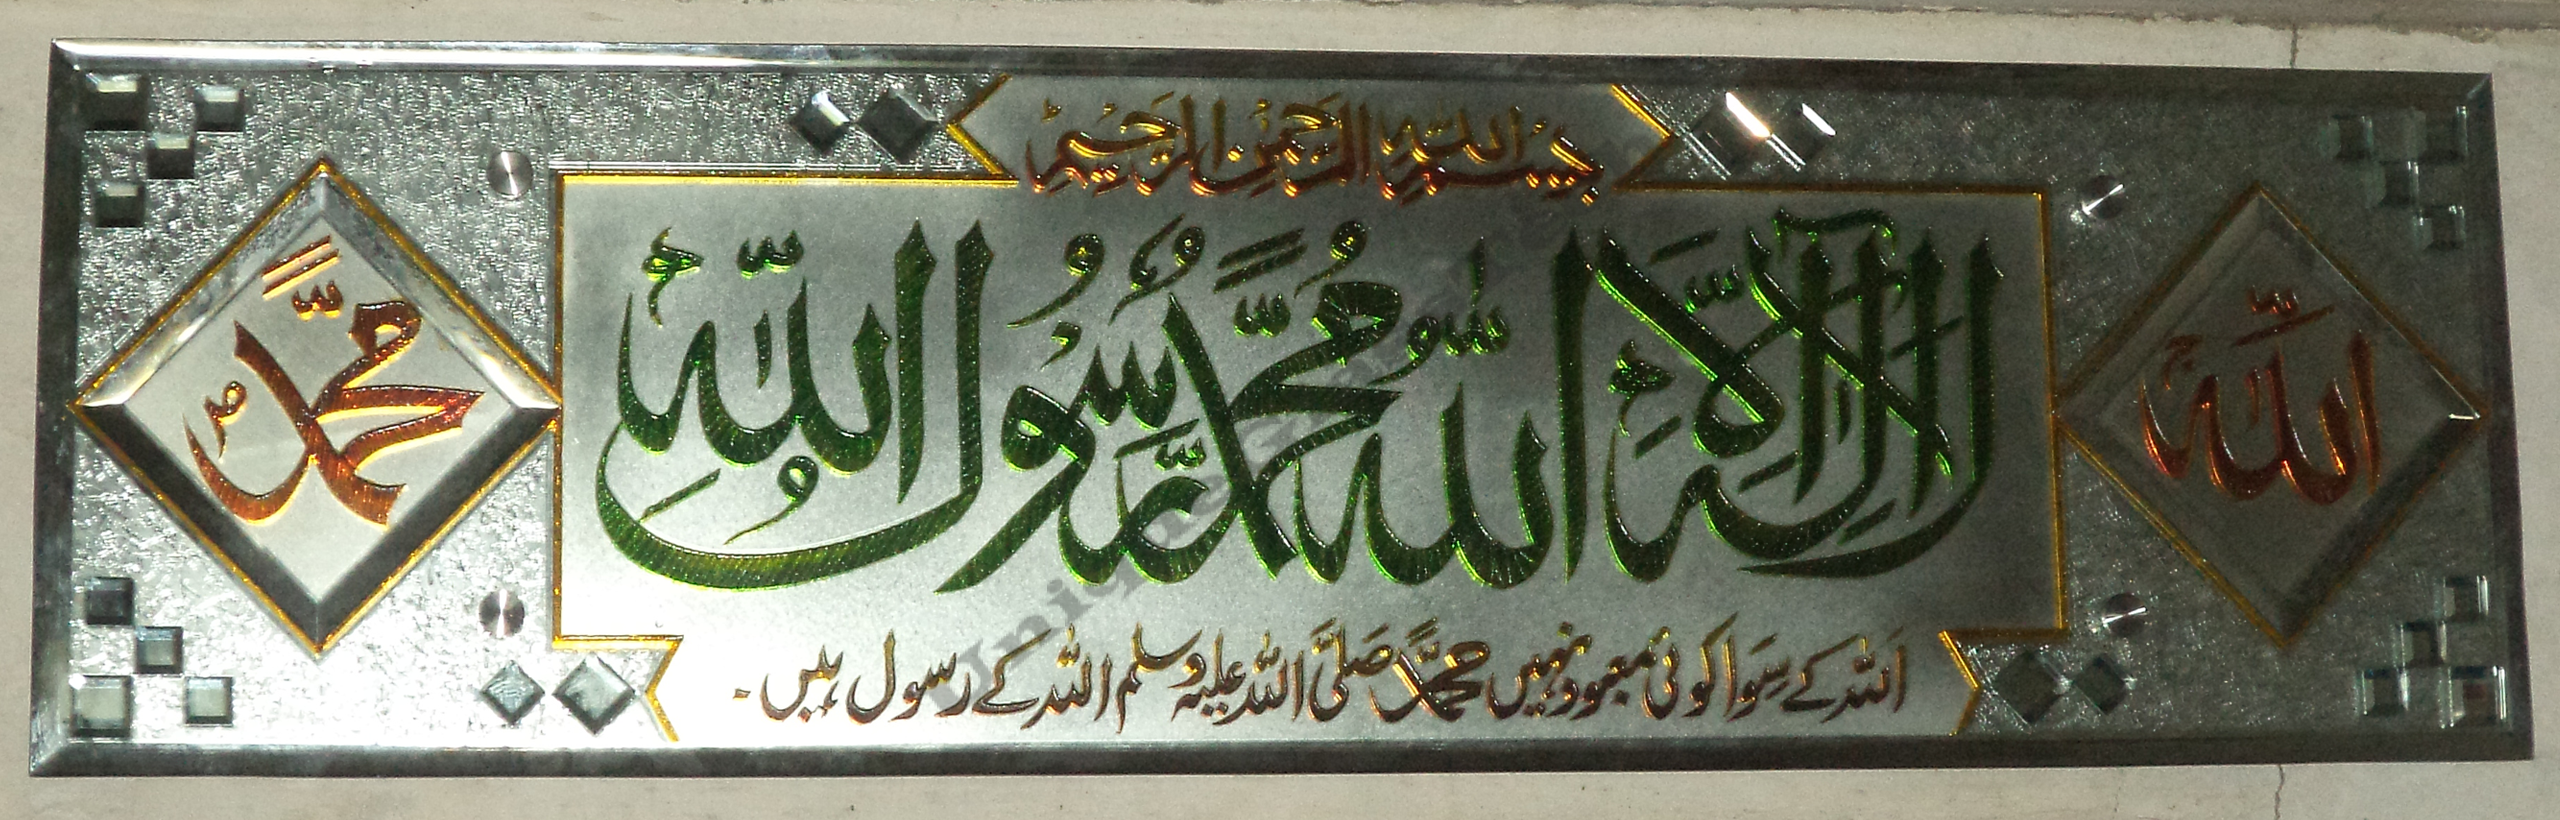 بِسْمِ اللّٰهِ الرَّحْمٰنِ الرَّحِيْمِ
اللّٰه
لَآ اِلٰهَ اِلَّا اللّٰهُ مُحَمَّدٌ رَّسُوْلُ اللّٰهِ
مُحَمَّد
اَللّٰہ کے سِوَا کوئی معبود نہیں محمَّد صَلَّی اللّٰہ علیہ وسلم اللّٰہ کے رسول ہیں۔